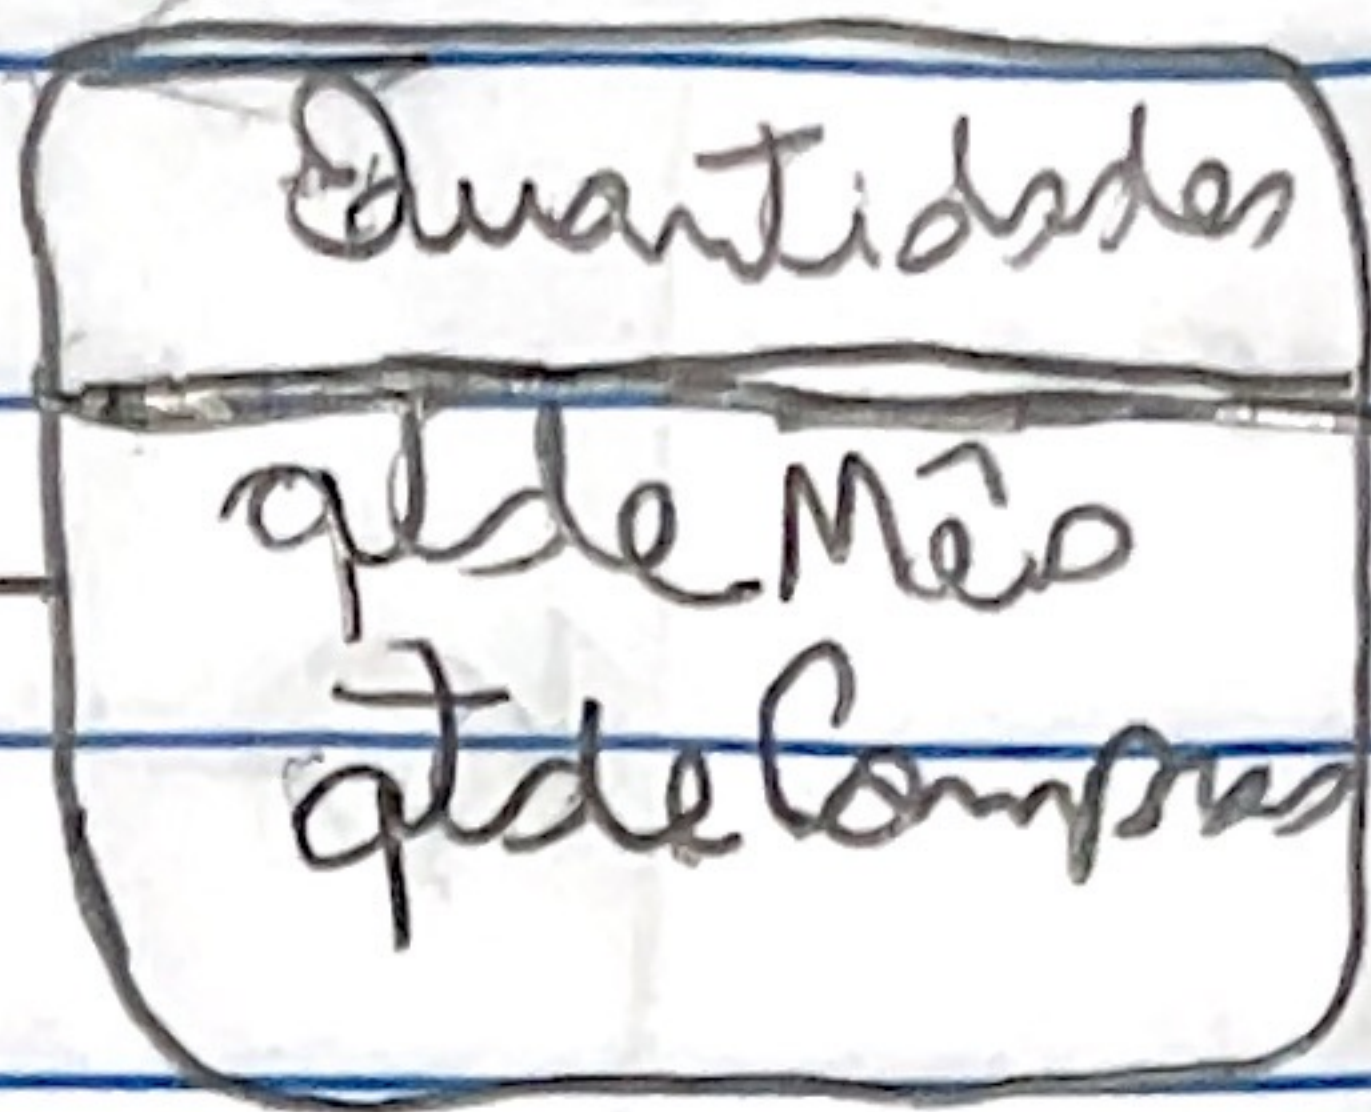 Quantidades
qtde Mês
qtde Compras